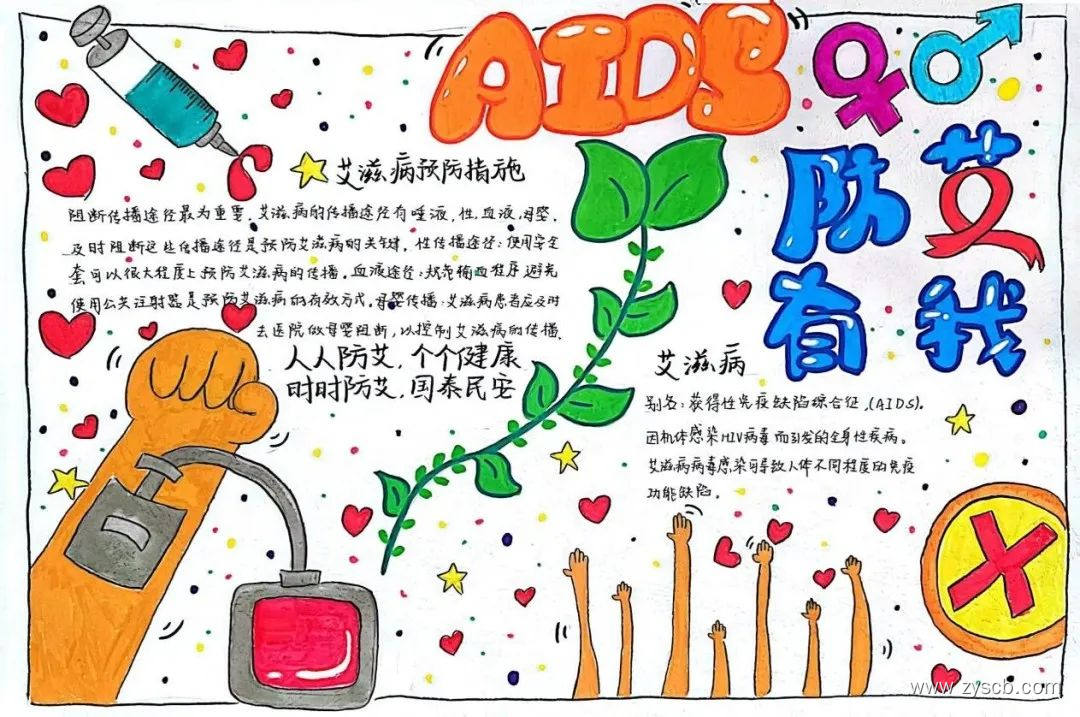 AIDS
防艾
有我
艾滋病预防措施
阻断传播途径最为重要。艾滋病的传播途径有唾液、性、血液、母婴。
及时阻断这些传播途径是预防艾滋病的关键。性传播途径:使用安全
套可以很大程度上预防艾滋病的传播。血液途径:规范输血程序避免
使用公共注射器是预防艾滋病的有效方式。母婴传播:艾滋病患者应及时
去医院做母婴阻断,以控制艾滋病的传播。
人人防艾,个个健康
时时防艾,国泰民安
艾滋病
别名:获得性免疫缺陷综合征,(AIDS)。
因机体感染HIV病毒而引发的全身性疾病。
艾滋病病毒感染可导致人体不同程度的免疫
功能缺陷。
www.zyscb.com